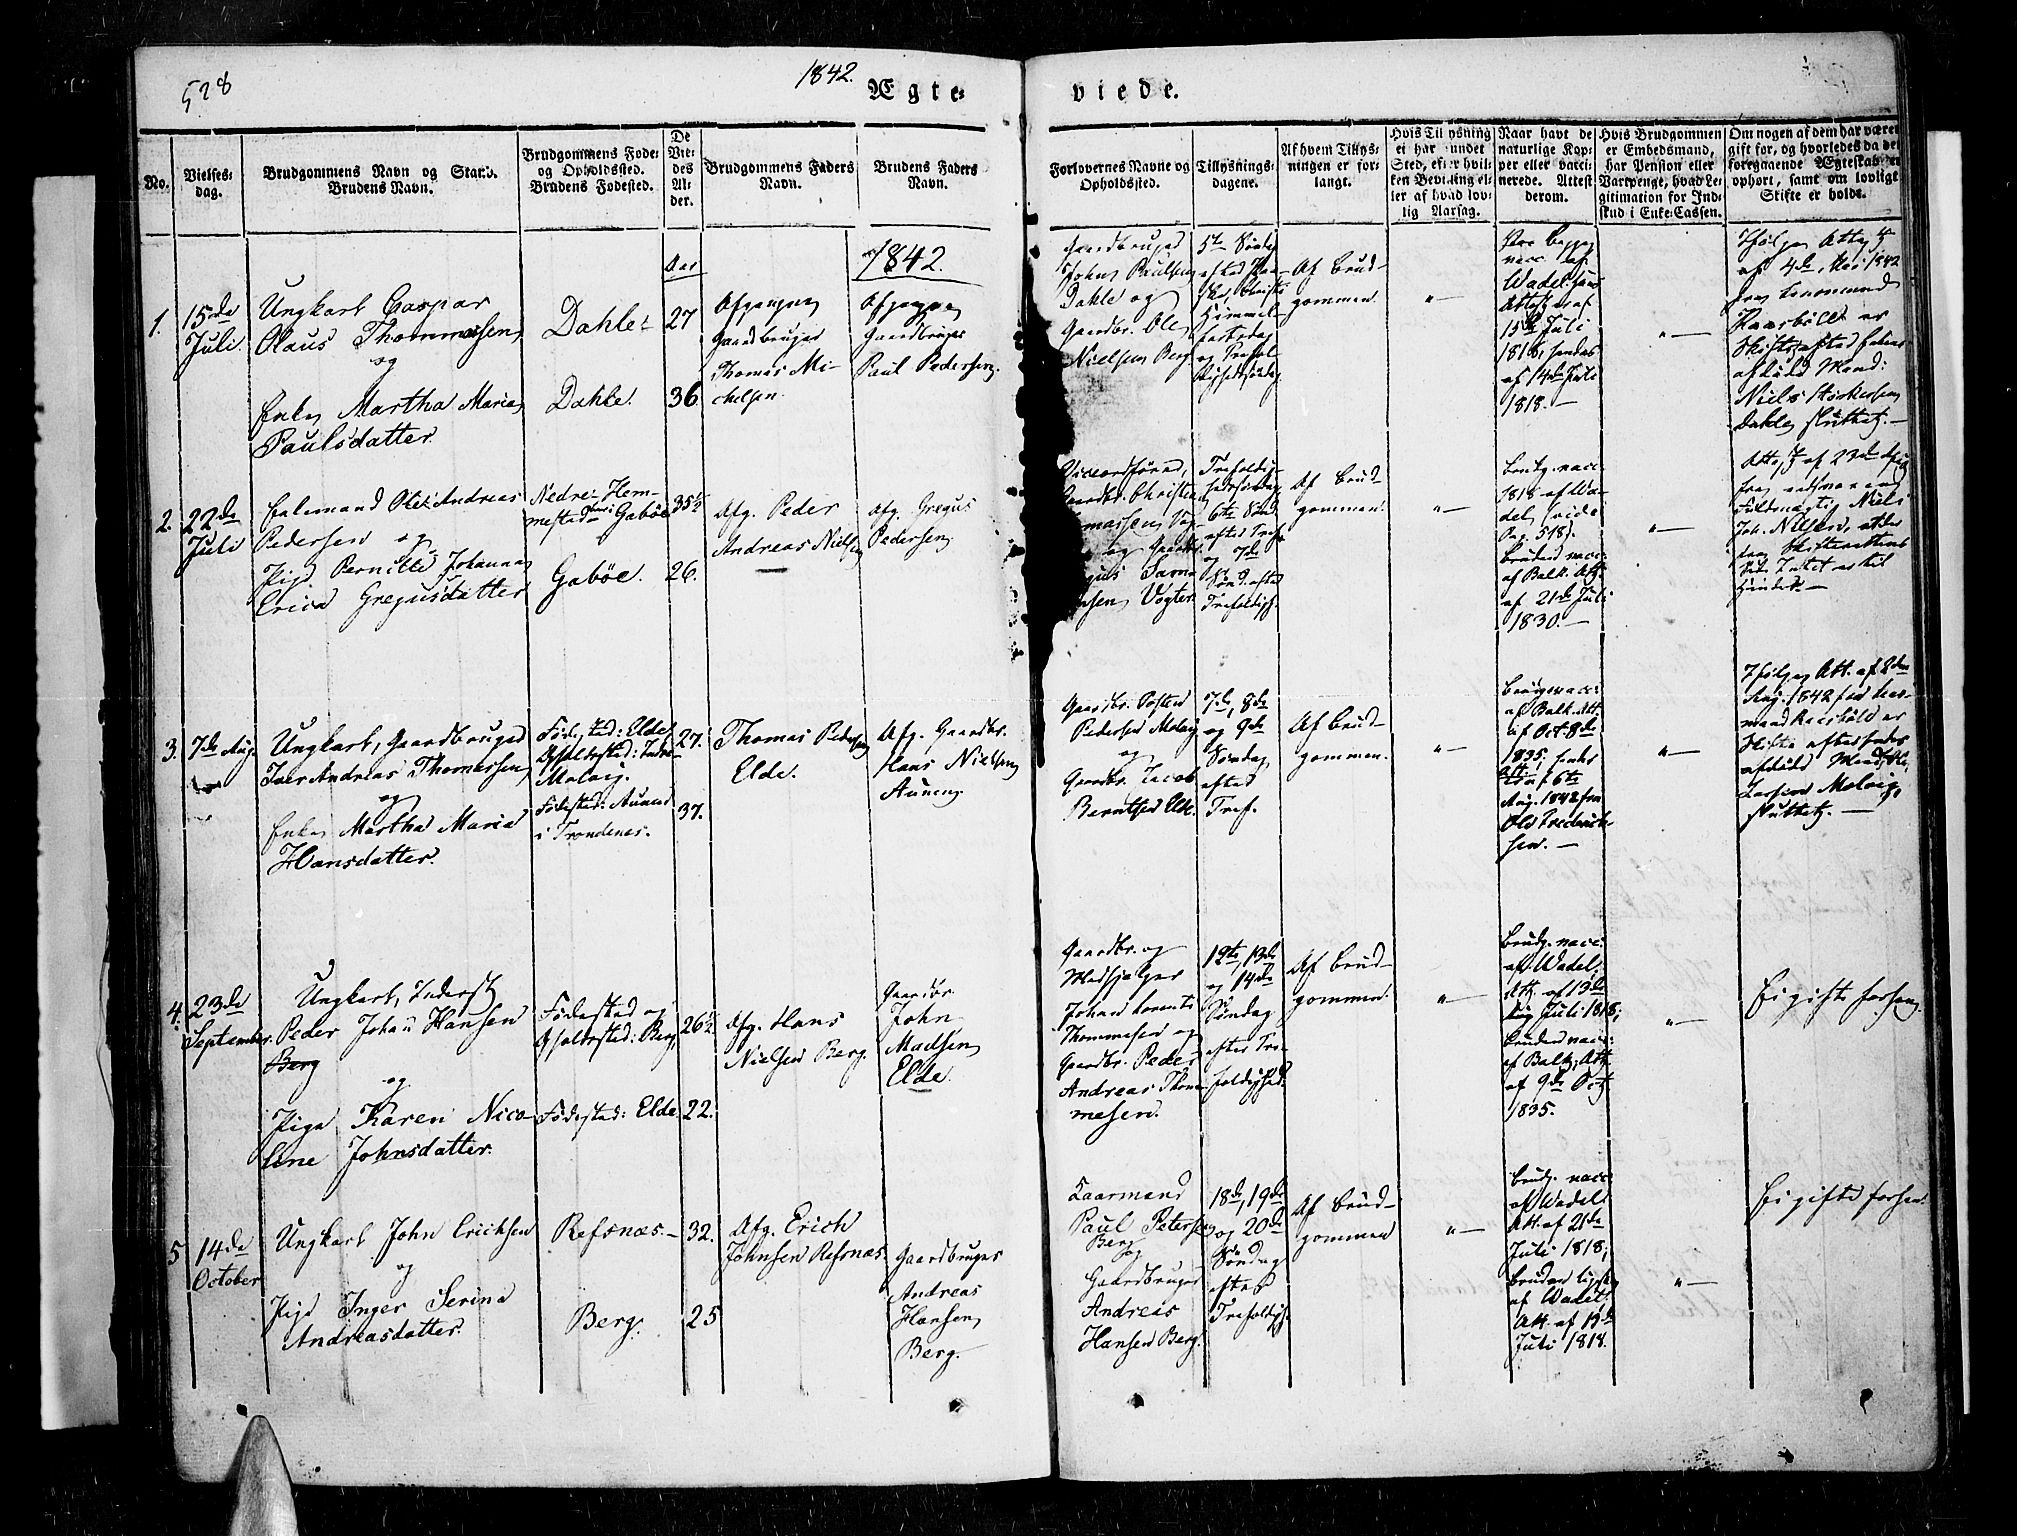 528
1842.
Ægte-
viede.
No.
Vielses-
dag.
Brudgommens Navn og Stand.
Brudens Navn.
Brudgommens Føde-
og Opholdssted.
Brudens Fødested.
De
Vie-
des
Al-
der.
Brudgommens Faders
Navn.
Brudens Faders
Navn.
Forlovernes Navne og
Opholdssted.
Tillysnings-
dagene.
Af hvem Tillys-
ningen er for-
langt.
Hvis Tillysning
ei har fundet
Sted, efter hvil-
ken Bevilling el-
ler af hvad lov-
lig Aarsag.
Naar havt de
naturlige Kop-
per eller vacci-
nerede. Attest
derom.
Hvis Brudgommen
er Embedsmand,
har Pension eller
Vartpenge, hvad Le-
gitimation for Ind-
skud i Enke-Cassen.
Om nogen af dem har været
gift før, og hvorledes da det
foregaaende Ægteskab er
ophørt, samt om lovligt
Skifte er holdt.
Aar
1842.
1.
15de
Juli.
Ungkarl Caspar
Olaus Thomassen
og
Enke Martha Maria
Paulsdatter.
Dahle
27
Dahle.
36
Afgangne
Gaardbruger
Thomas Mi-
chelsen.
Afgangne
Gaardbruger
Paul Pedersen.
Gaardbruger
John Paulsen
Dahle og
Gaardbr. Ole
Nielsen Berg
5te Søndag
Himmel-
fartsdag
Af Brud-
gommen.
"
Wadel
Attest af
15de Juli
1818,
af 14de Juli
1818.
"
Ifølge Attest
af 4de Mai 1842
fra Lensmand
Kaarbøll er
Skifte efter hendes
afdøde Mand:
Niels
Dahle sluttet.
2.
22de
Juli
Enkemand Ole Andreas
Pedersen og
Pige Pernille Johanna
Erica Gregusdatter
Nedre-Hem-
mestad Gabøe
35½
Gabøe.
26.
Afg. Peder
Andreas Nielsen
Afg. Gregus
Pedersen.
Gaardbr. Christen
og Gaardbr.
Vogter
6te Sønd.
efter Tref.
og 7de
Sønd. efter
Trefoldigh.
Af Brud-
gommen.
"
Brudg. vacc.
1818 af Wa-
del, vide
Pag. 518.
Bruden vacc.
af Balk. Att.
af 21de Juli
1830.
"
Att. af 23de
Niels
Joh. Nilsen,
3.
7de Aug.
Ungkarl, Gaardbruger
Iver Andreas Thomassen
og
Enke Martha Maria
Hansdatter.
Fødested: Elde,
Opholdssted: Indre
Molvig.
27.
Fødested: Aunen
i Trondenæs.
37.
Thomas Pedersen
Elde.
Afg. Gaardbr.
Hans Nielsen
Aunen.
Gaardbr.
Pedersen Molvig
og
Gaardbr. Jacob
Berntsen Elde.
7de, 8de
og 9de
Søndag
efter
Tref.
Af Brud-
gommen.
"
Brudg. vacc.
af Balk. Att.
af Oct. 8de
1835,
Att. af 6te
Aug. 1842 fra
Ole Frederik-
sen.
"
Ifølge Att. af
Aug. 1842 fra Lens-
mand Kaarbøll er
Skifte efter hendes
afdøde Mand,
Larsen Molvig,
sluttet.
4.
23de
September.
Ungkarl, Inderst
Peder Johan Hansen
Berg
og
Pige Karen Nico-
line Johnsdatter.
Fødested og
Opholdssted: Berg,
26½
Fødested: Elde.
22.
Afg. Hans
Nielsen Berg.
Gaardbr.
John
Madsen
Elde.
Gaardbr. og
Medhjælper
Johan Lorents
Thommesen og
Gaardbr. Peder
Andreas Thom-
mesen.
12te, 13de
og 14de
Søndag
efter Tre-
foldighed.
Af Brud-
gommen.
"
Brudg. vacc.
af Wadel,
Att. af 13de
Juli 1818;
Bruden vacc.
af Balk, Att.
af 9de Oct.
1835.
"
Ei gifte forhen.
5
14de
October
Ungkarl John Erichsen
og
Pige Inger Serina
Andreasdatter.
Refsnæs.
32.
Berg.
25
Afg. Erich
Johnsen Refsnæs.
Gaardbruger
Andreas
Hansen
Berg.
Paul Petersen
Berg
og
Gaardbruger
Andreas
Hansen Berg.
18de, 19de
og 20de
Søndag
efter
Trefoldigh.
Af Brud-
gommen
"
Brudg. vacc.
af Wadel
Att. af 21de
Juli 1818;
Bruden ligesaa
af Wadel.
Att. af 15de
Juli 1818.
"
Ei gifte forhen.